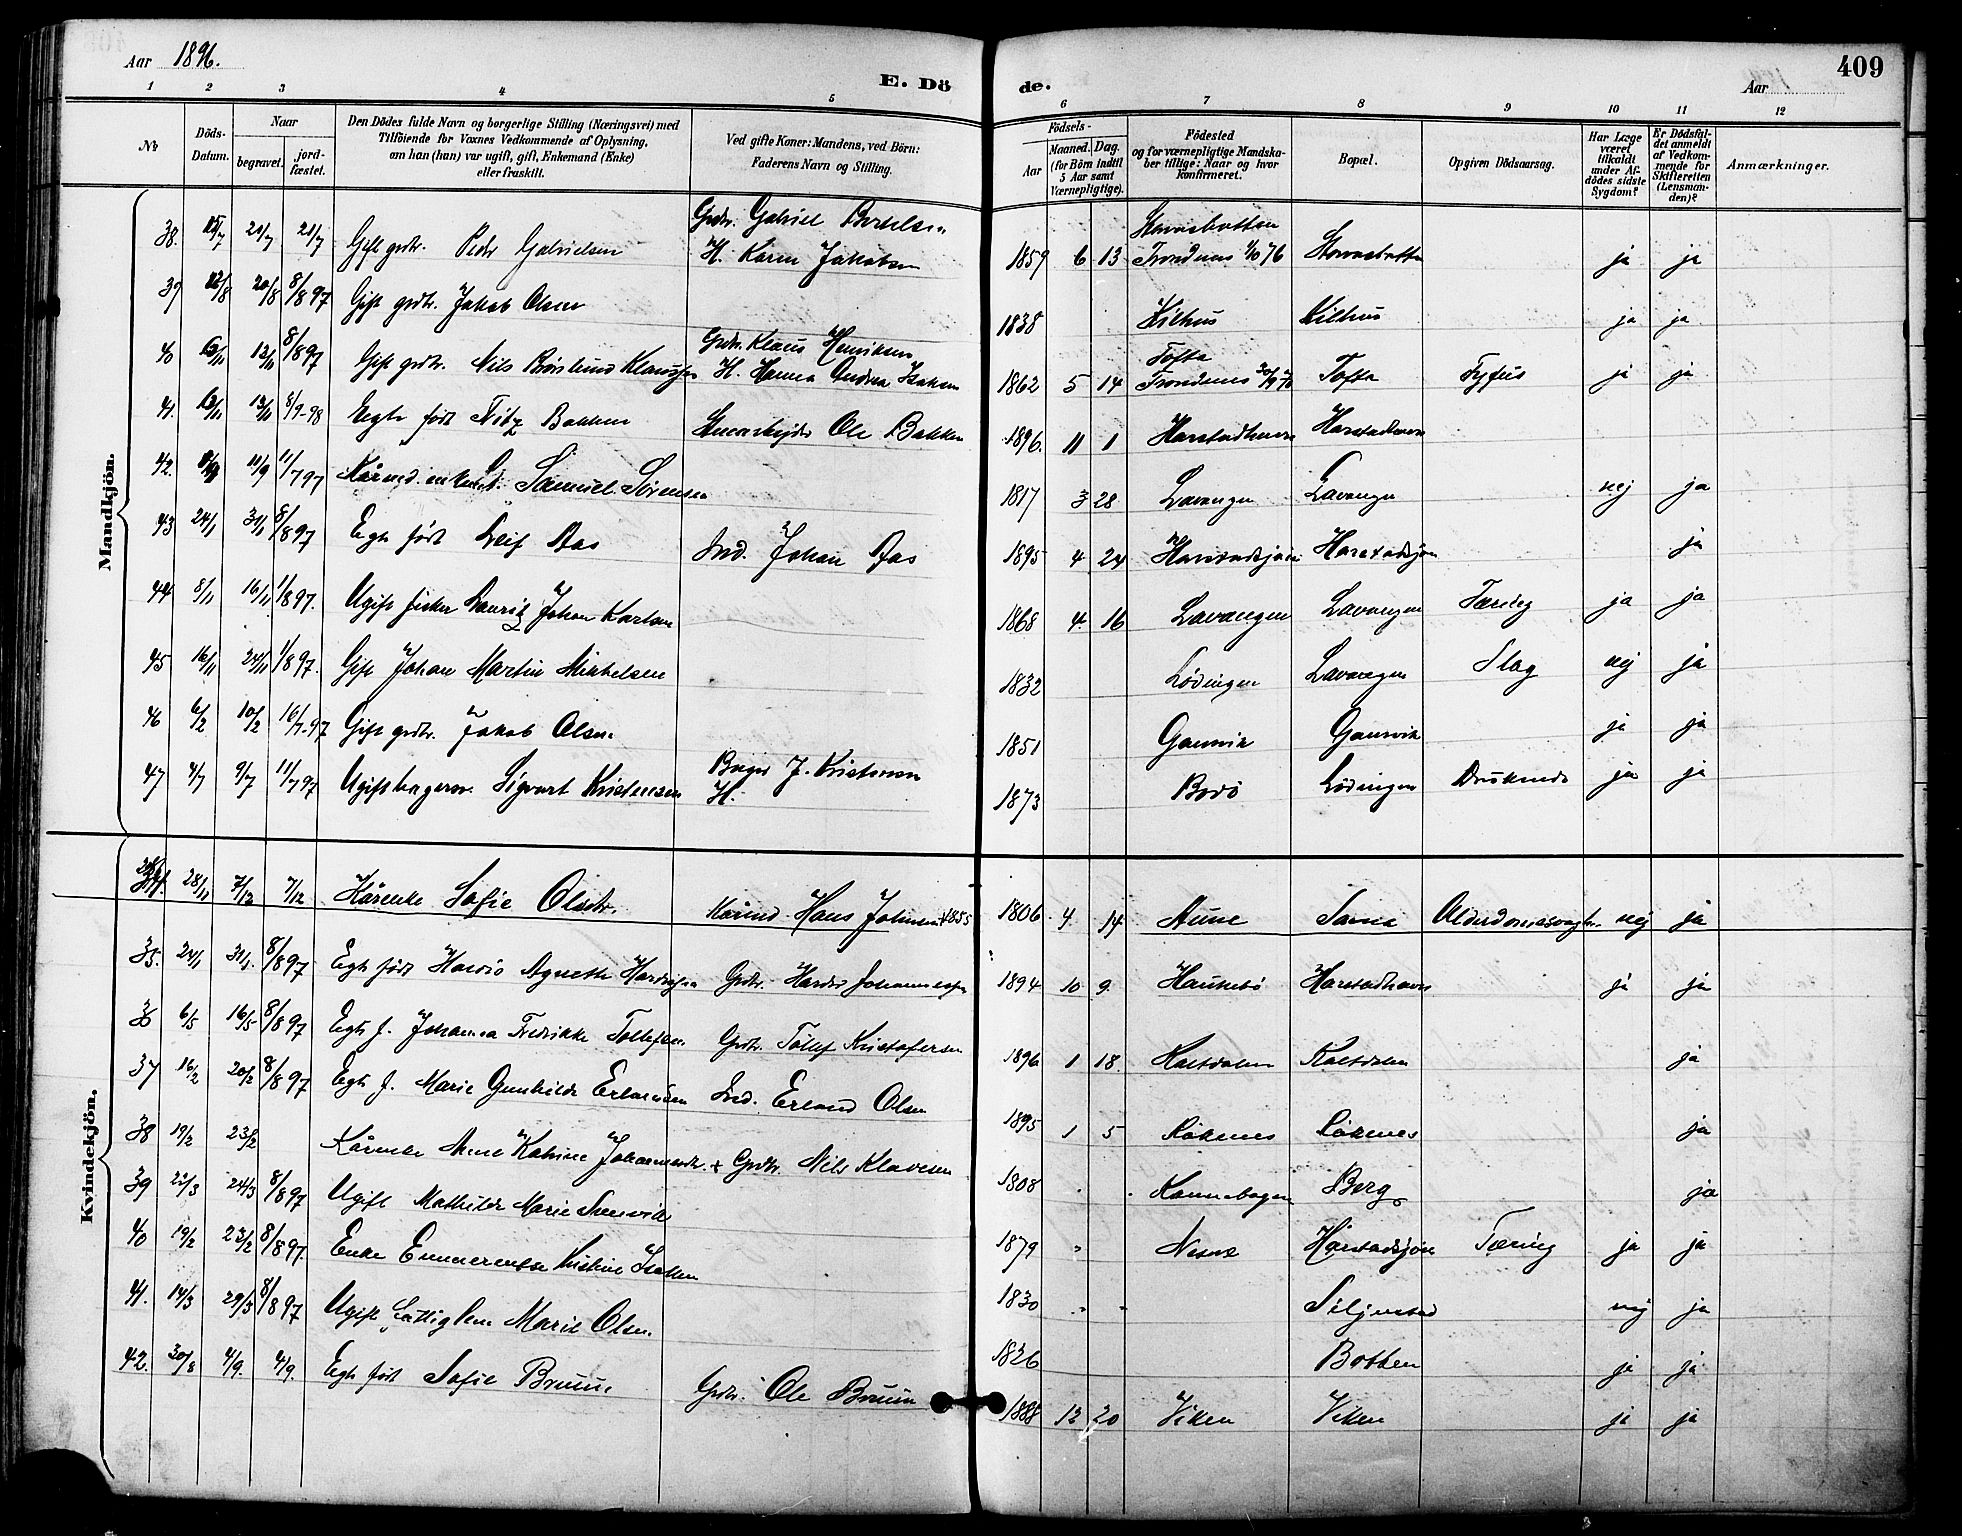 Aar 1896.
E. Döde.
Aar
409
1 2 3 4 5 6 7 8 9 10 11 12
No
Döds-Datum.
Naar
begravet.
jord-fæstet.
Den Dödes fulde Navn og borgerlige Stilling (Næringsvei) med
Tilföiende for Voxnes Vedkommende af Oplysning,
om han (hun) var ugift, gift, Enkemand (Enke)
eller fraskilt.
Ved gifte Koner: Mandens, ved Börn:
Faderens Navn og Stilling.
Födsels-
Aar
Maaned. Dag.
(for Börn indtil
5 Aar samt
Værnepligtige).
Födested
og for værnepligtige Mandska-
ber tillige: Naar og hvor
konfirmeret.
Bopæl.
Opgiven Dödsaarsag.
Har Læge
været
tilkaldt
under Af-
dödes sidste
Sygdom?
Er Dödsfal-
det anmeldt
af Vedkom-
mende for
Skifteretten
(Lensman-
den)?
Anmærkninger.
Mandkjön.
38. 21/7 21/7 Gift grdr. Peder Gabrielsen Grdr. Gabriel Bertelsen H. Karen Jakobsen 1859 6 13 Trondenes 1/10 76 ja ja
39 12/8 20/8 8/8 97 Gift grdr. Jakob Olsen 1838 Kilhus Kilhus ja ja
40 12/11 8/8 97 Gift grdr. Nils Klaussen Grdr. Klaus Henriksen H. Hanna Andrea Isaksen 1862 5 14 Tofta Trondenes Tofta Tyfus ja ja
41. 13/11 8/9-98 Egte født Nitz Bakken Ole Bakken 1896. 11 1 Harstadhavn Harstadhavn
42. 11/9 11/7 97 Samuel Sørensen 1817 3 28 Lavangen Lavangen nej ja
43 24/1 31/1 8/8 97 Egte født Leif Aas Ind. Johan Aas 1895 4 24 Harstadsjøen Harstadsjøen ja
44 8/11 16/11 11/8 97. Ugift fisker Lauritz Johan Karlsen 1868 4. 16 Lavangen Lavangen Tæring ja ja
45 16/11 24/11 1/8 97. Gift Johan Martin Mikkelsen 1832 Lødingen Lavangen Slag nej ja
46 6/2 10/2 16/7-97 Gift grdr. Jakob Olsen 1851 Gansvik Gansvik ja ja
47 4/7 9/7 11/7 97 Ugift bagersv. Sigvart Kristensen Bager J. Kristensen H. 1873 Bodö Lødingen Druknede ja ja
Kvindekjön.
28/11 7/12 7/12 Kårenke Sofie Olsdtr. Kårmd. Hans Johnsen +1855 1806. 4. 14 Aune Sama nej ja
35. 24/1 31/1. 8/8 97 Egte født Agnethe Grdr. 1894 10 9. Haukebö Harstadhavn ja ja
36 6/5 16/5 8/8 97 Egte f. Johanna Fredrikke Tollefsen Grdr. Tollef Kristofersen 1896 1 18. Kaltdalen Kaltdalen ja
37 16/2 20/2 8/8 97 Egte f. Marie Gunhilde Erlandsen Ind. Erland Olsen 1895 1 5 Røkenes Røkenes ja
38 19/2 23/2 Kårenke Anne Katrine Johannesdr. + Grdr. Nils Klavesen 1808 Kannebogen Berg ja
39 21/3 24/3 8/8 97 Ugift Mathilde Marie 1879 " Nesne Harstadsjøen Tæring ja ja
40 19/2 23/2 8/8 97. Enke Emmerentse Kristine Isaksen 1830 " " Siljustad nej ja
41. 14/3 29/3 8/8 97 Ugift Marie Olsen 1826 Botten ja ja
42. 30/8 4/9. 4/9. Egte født Sofie Bruun Grdr. Ole Bruun 1888 12 20 Viken Viken ja ja